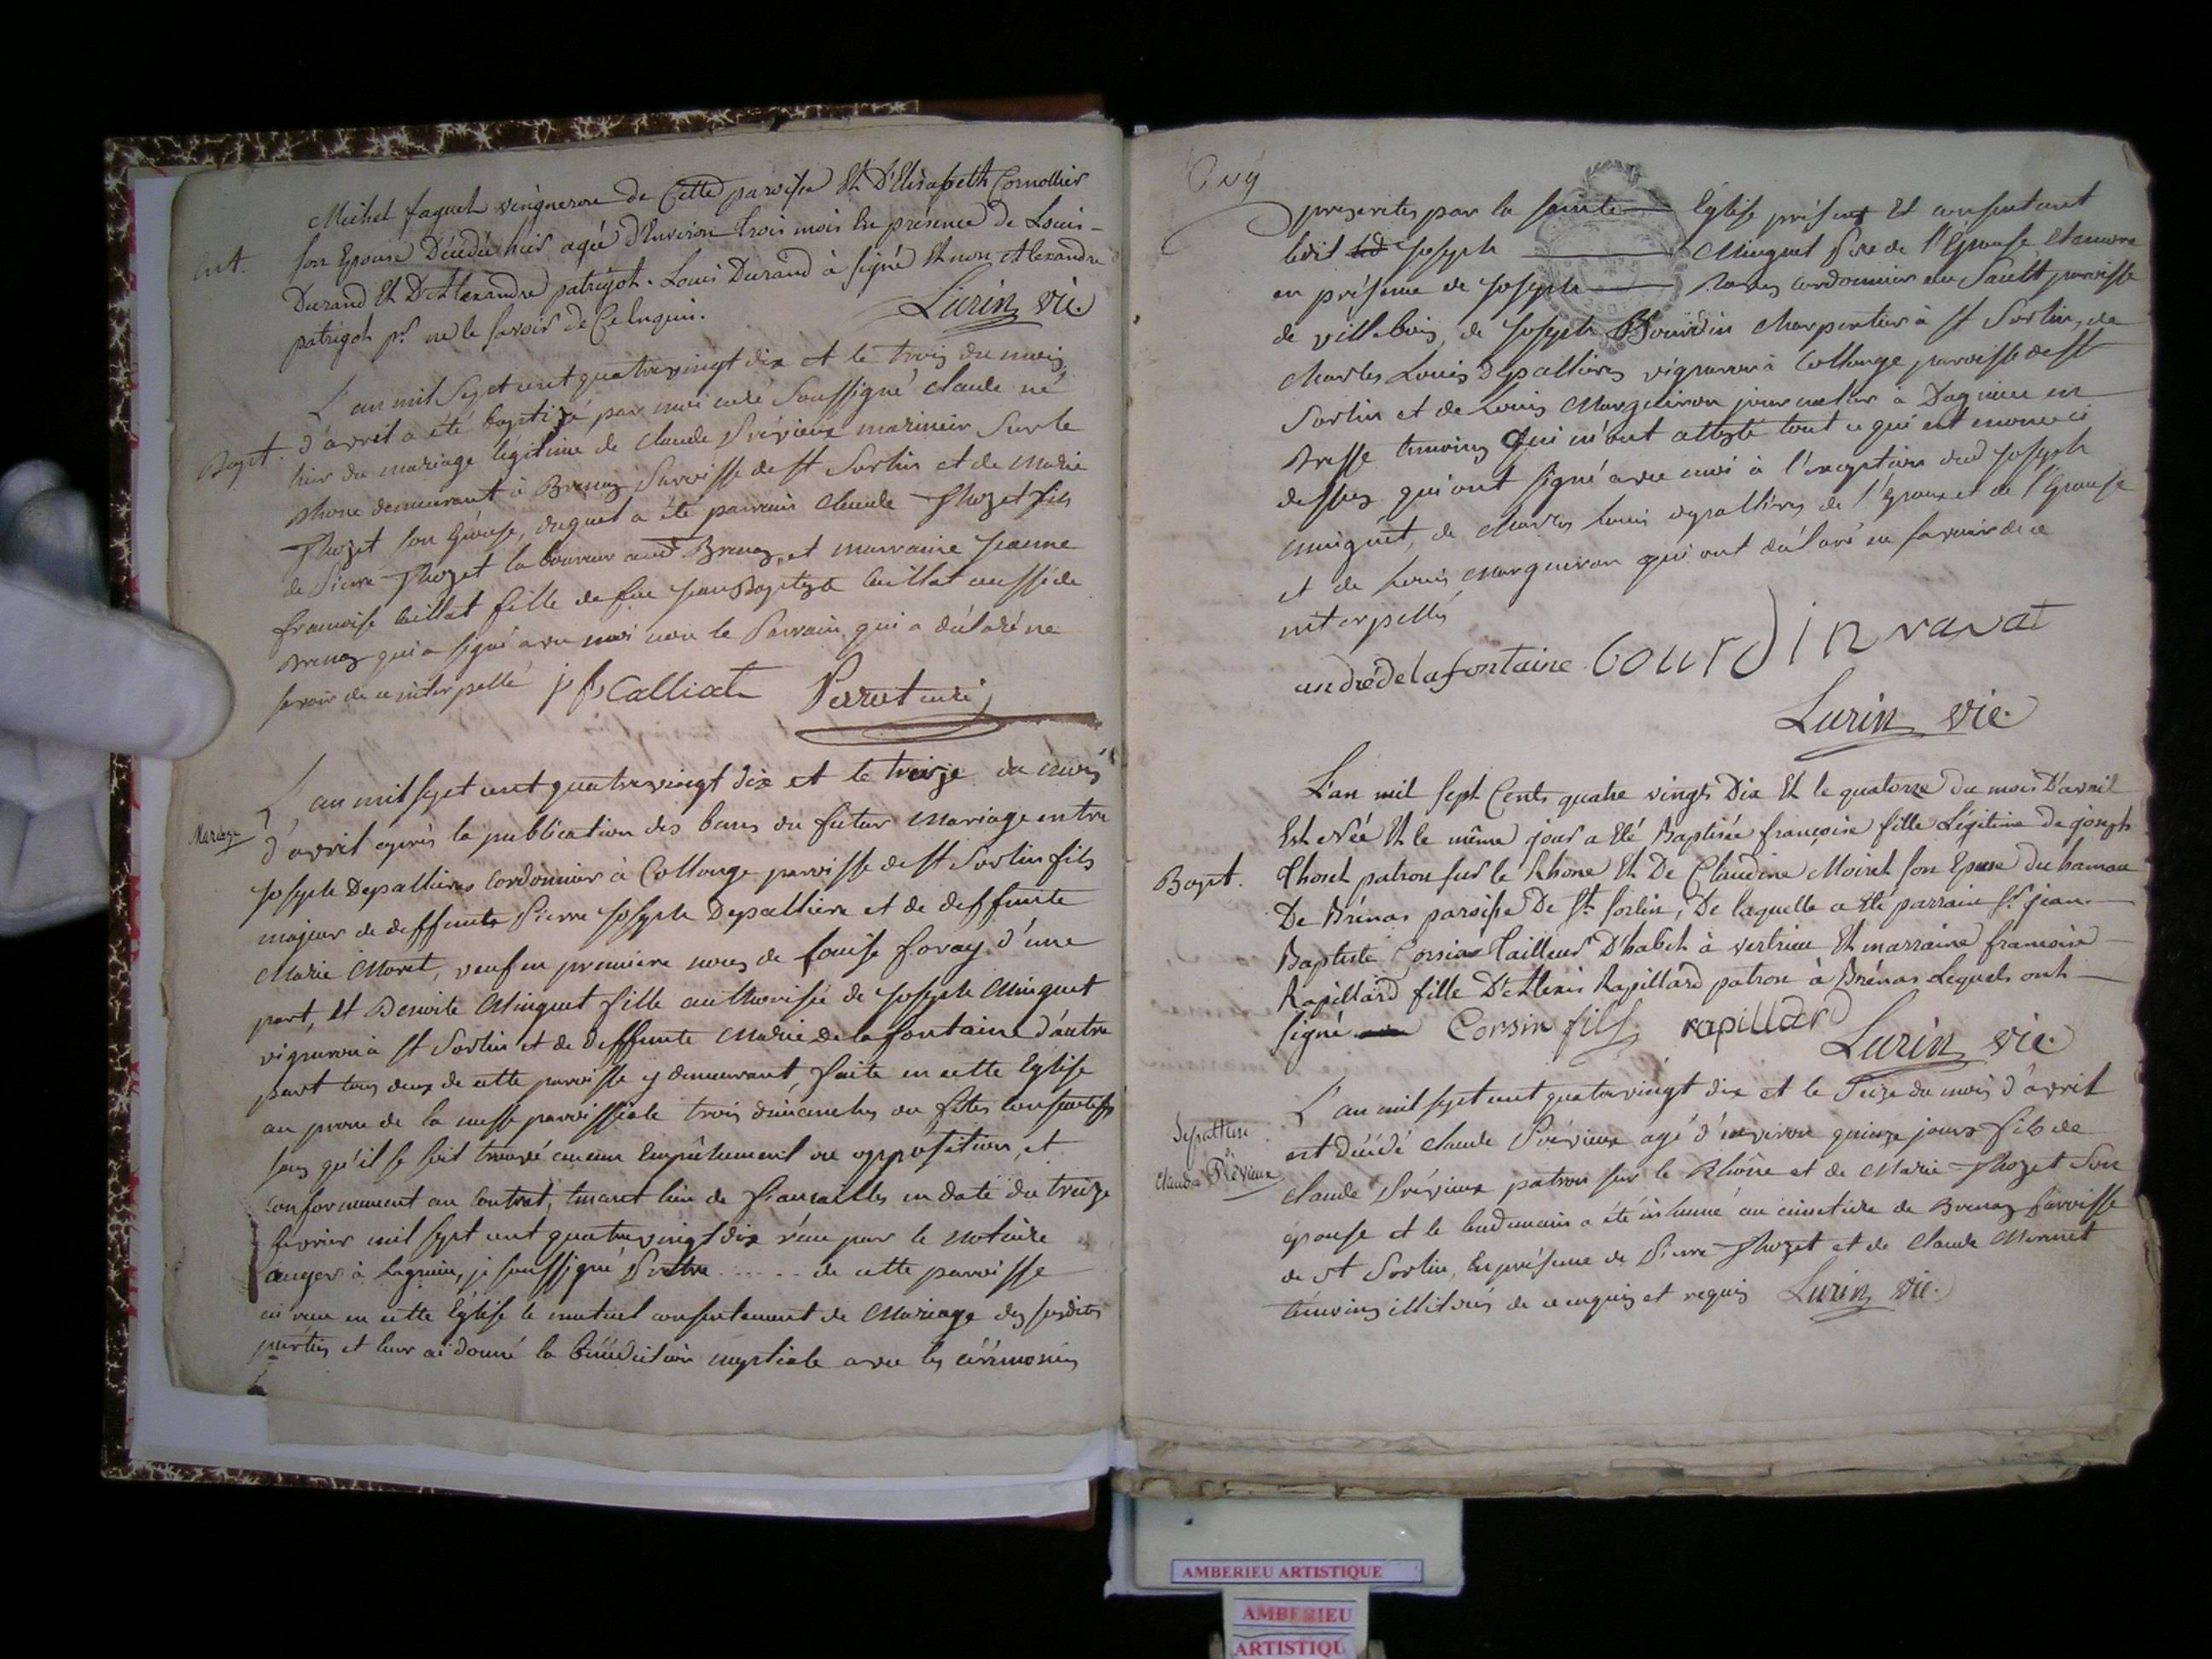 Michel faguet veigneron de Cette paroisse Et D'Elisabeth Cornollier
Ent.
son Epouse Décédée hier agée d'Environ trois mois En présence de Louis
Durand Et D'Alexandre patrigot. Louis Durand à signé Et non Alexandre
patrigot pr. ne le savoir de Ce Enquis.
Lurin vic.
Bapt.
L'an mil Sept cent quatrevingt dix et le trois du mois
d'avril a été baptizé par moi curé Soussigné claude né
hier du mariage légitime de claude Prévieux marinier Sur le
Rhone demeurant à Brenaz Paroisse de St Sorlin et de Marie
Thozet son épouse, duquel a été parrain claude Thozet fils
de Pierre Thozet laboureur aud. Brenaz, et marraine jeanne
francoise caillat fille de feu jean Baptizte caillat aussi de
Brenaz qui a signé avec moi non le Parrain qui a déclaré ne
savoir de ce interpellé
j f Calliat
Perret curé
Mariage
L'an mil sept cent quatrevingt dix et le treize du mois
d'avril après la publication des bans du futur Mariage entre
joseph Depallieres Cordonnier à Collonge paroisse de St Sorlin fils
majeur de deffunts Pierre joseph Depalliere et de deffunte
Marie Moret, veuf en premiere noces de Louise foray d'une
part, et Benoite Minguet fille authorisée de joseph Minguet
vigneron à St Sorlin et de deffunte Marie delafontaine d'autre
part tous deux de cette paroisse y demeurant, faite en cette Eglise
au prone de la messe paroissiale trois dimanches ou fêtes consecutifs
sans qu'il se soit trouvé aucun Empêchement ou opposition, et
conformement au contrat, tenant lieu de fiancailles en date du treize
fevrier mil sept cent quatrevingt dix reçu par le notaire
auger à lagnieu, je soussigné Prêtre ...... de cette paroisse
ai reçu en cette Eglise le mutuel consentement de Mariage des susdites
parties et leur ai donné la bénédiction nuptiale avec les cérémonies
prescrites par la sainte Eglise présent Et consentant
ledit joseph Minguet Père de l'Epouse, Et encore
en présence de joseph cordonnier au Sault paroisse
de villebois, de joseph Bourdin charpentier à St Sorlin, de
charles Louis Depallieres vigneron à Collonge paroisse de St
Sorlin et de Louis Marguiron journalier à Dagnieu en
Bresse temoins Qui m'ont attesté tout ce qui est enoncé ci
dessus qui ont signé avec moi à l'exception dud joseph
minguet, de charles louis depallieres de l'Epoux et de l'Epouse
et de Louis Marguiron qui ont déclaré ne savoir de ce
interpellés
andré delafontaine
bourdin
ravat
Lurin vic.
Bapt.
L'an mil Sept Cents quatre vingts Dix Et le quatorze du mois D'avril
Est Née Et le même jour a Eté Baptisée françoise fille Légitime de joseph
Thozet patron sur le Rhône Et De Claudine Moiret son Epouse du hameau
De Brénas paroisse De St. Sorlin, De laquelle a Eté parrain Sr. jean
Baptiste Corsin Tailleur D'habit à vertrieu Et marraine francoise
Rapillard fille D'Alexis Rapillard patron à Brénas Lequels ont
signé
Corsin fils
rapillard
Lurin vic.
Sepulture
de
Claude Prévieux
L'an mil sept cent quatrevingt dix et le Seize du mois d'avril
est décédé claude Prévieux agé d'environ quinze jours fils de
claude Prévieux patron sur le Rhône et de Marie Thozet son
épouse et le lendemain a été inhumé au cimetière de Brenaz Paroisse
de St Sorlin, En présence de Pierre Thozet et de claude Mermet
témoins illitérés de ce enquis et requis
Lurin vic.
AMBERIEU ARTISTIQUE
AMBERIEU
ARTISTIQU